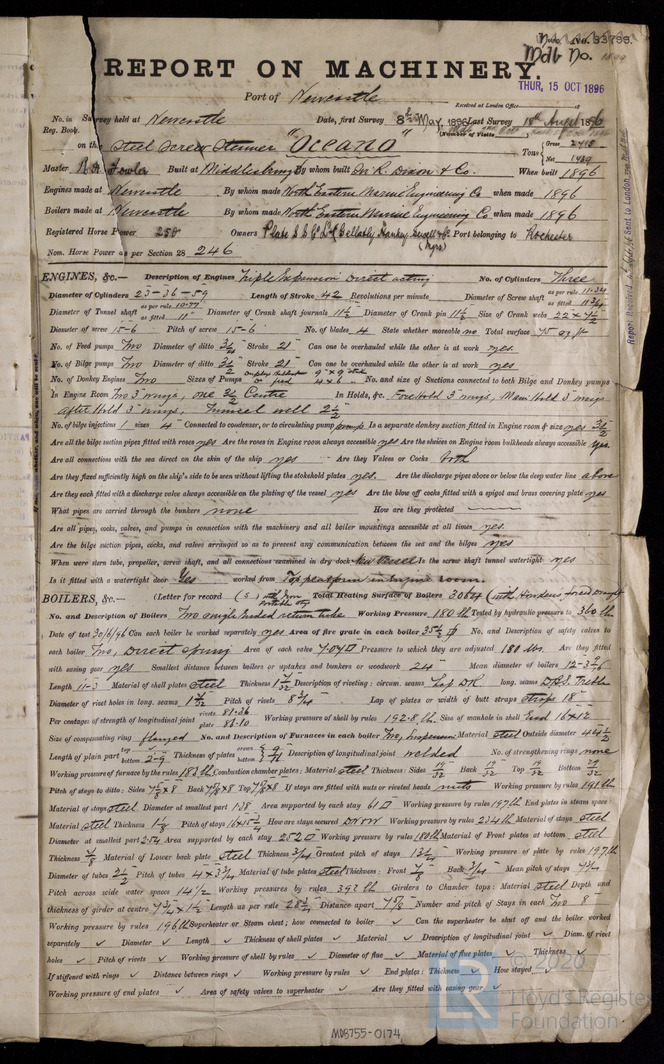 No. 33798.
Mdb No.
REPORT ON MACHINERY.
THUR, 15 OCT 1896
Port of Newcastle
Received at London Office
No. in Reg. Book. Survey held at Newcastle Date, first Survey 8th May, 1896 Last Survey 18th Augt 1896
(Number of Visits
on the Steel Screw Steamer "Oceano" Tons Gross Net
Master Fowler Built at Middlesbrough By whom built R. Dixon & Co. When built 1896
Engines made at Newcastle By whom made North Eastern Marine Engineering Co when made 1896
Boilers made at Newcastle By whom made North Eastern Marine Engineering Co when made 1896
Registered Horse Power 250 Owners Plate S.S. Co Ld (Gellatly Hankey Sewell & Co. Mgrs) Port belonging to Rochester
Nom. Horse Power as per Section 28 246
ENGINES, &c.— Description of Engines Triple Expansion Direct acting No. of Cylinders Three
Diameter of Cylinders 23-36-59 Length of Stroke 42 Revolutions per minute Diameter of Screw shaft as per rule as fitted 11 3/4
Diameter of Tunnel shaft as per rule 10.77 as fitted 11" Diameter of Crank shaft journals 11 1/2 Diameter of Crank pin 11 1/2 Size of Crank webs 22 x 7 1/2
Diameter of screw 15-6 Pitch of screw 15-6 No. of blades 4 State whether moveable no Total surface 75 sq ft
No. of Feed pumps Two Diameter of ditto 3 1/4 Stroke 21" Can one be overhauled while the other is at work yes.
No. of Bilge pumps Two Diameter of ditto 3 1/2 Stroke 21" Can one be overhauled while the other is at work yes
No. of Donkey Engines Two Sizes of Pumps No. and size of Suctions connected to both Bilge and Donkey pumps
In Engine Room Two 3" wings, one 3 1/2 Centre In Holds, &c. Fore Hold 3" wings, Main Hold 3" wings
After Hold 3" wings, Tunnel well 2 1/2
No. of bilge injections 1 sizes 4 Connected to condenser, or to circulating pump pumps Is a separate donkey suction fitted in Engine room & size yes 3 1/2
Are all the bilge suction pipes fitted with roses yes Are the roses in Engine room always accessible yes Are the sluices on Engine room bulkheads always accessible yes
Are all connections with the sea direct on the skin of the ship yes Are they Valves or Cocks both
Are they fixed sufficiently high on the ship's side to be seen without lifting the stokehold plates yes. Are the discharge pipes above or below the deep water line above
Are they each fitted with a discharge valve always accessible on the plating of the vessel yes Are the blow off cocks fitted with a spigot and brass covering plate yes
What pipes are carried through the bunkers none How are they protected
Are all pipes, cocks, valves, and pumps in connection with the machinery and all boiler mountings accessible at all times yes.
Are the bilge suction pipes, cocks, and valves arranged so as to prevent any communication between the sea and the bilges yes
When were stern tube, propeller, screw shaft, and all connections examined in dry dock New Vessel Is the screw shaft tunnel watertight yes
Is it fitted with a watertight door Yes worked from Top platform in Engine room.
BOILERS, &c.— (Letter for record (S) Total Heating Surface of Boilers 3064 (with Howdens forced Draught
No. and Description of Boilers Two single ended return tube Working Pressure 180 lb Tested by hydraulic pressure to 360 lb
Date of test 30/6/96 Can each boiler be worked separately yes Area of fire grate in each boiler 35 1/2 No. and Description of safety valves to
each boiler Two, Direct spring Area of each valve 7.07 Pressure to which they are adjusted 180 lbs. Are they fitted
with easing gear yes Smallest distance between boilers or uptakes and bunkers or woodwork 24" Mean diameter of boilers 12-3
Length 11-3 Material of shell plates steel Thickness 1 7/32 Description of riveting: circum. seams Lap DR long. seams DBS. Treble
Diameter of rivet holes in long. seams 1 7/32 Pitch of rivets 8 3/4 Lap of plates or width of butt straps straps 18"
Per centages of strength of longitudinal joint rivets 81.36 plate 86.10 Working pressure of shell by rules 192.8 lb. Size of manhole in shell End 16 x 12
Size of compensating ring flanged No. and Description of Furnaces in each boiler Two, Suspension Material steel Outside diameter 44 1/2
Length of plain part top bottom 2-9 Thickness of plates crown bottom Description of longitudinal joint welded No. of strengthening rings none
Working pressure of furnace by the rules 183 lb Combustion chamber plates: Material steel Thickness: Sides 19/32 Back 19/32 Top 19/32 Bottom 29/32
Pitch of stays to ditto: Sides 7 5/8 x 8 Back 7 5/8 x 8 Top 7 5/8 x 8 If stays are fitted with nuts or riveted heads nuts Working pressure by rules 191 lb
Material of stays steel Diameter at smallest part 1.38 Area supported by each stay 61 Working pressure by rules 197 lb End plates in steam space:
Material steel Thickness 1 1/8 Pitch of stays 16 x 15 3/4 How are stays secured DNW Working pressure by rules 234 lb Material of stays steel
Diameter at smallest part 2.54 Area supported by each stay 252 Working pressure by rules 180 lb Material of Front plates at bottom steel
Thickness 7/8 Material of Lower back plate steel Thickness 3/4 Greatest pitch of stays 13 1/4 Working pressure of plate by rules 197 lb
Diameter of tubes 2 1/2 Pitch of tubes 4 x 3 3/4 Material of tube plates steel Thickness: Front Back 3/4 Mean pitch of stays
Pitch across wide water spaces 14 1/2 Working pressures by rules Girders to Chamber tops: Material steel Depth and
thickness of girder at centre Length as per rule 28 1/2 Distance apart 7 5/8 Number and pitch of Stays in each Two 8"
Working pressure by rules 196 lb Superheater or Steam chest; how connected to boiler ✓ Can the superheater be shut off and the boiler worked
separately ✓ Diameter ✓ Length ✓ Thickness of shell plates ✓ Material ✓ Description of longitudinal joint ✓ Diam. of rivet
holes ✓ Pitch of rivets ✓ Working pressure of shell by rules ✓ Diameter of flue ✓ Material of flue plates ✓ Thickness ✓
If stiffened with rings ✓ Distance between rings ✓ Working pressure by rules ✓ End plates: Thickness ✓ How stayed
Working pressure of end plates ✓ Area of safety valves to superheater ✓ Are they fitted with easing gear ✓
© 2020
Lloyd's Register
Foundation
MDB755-0174